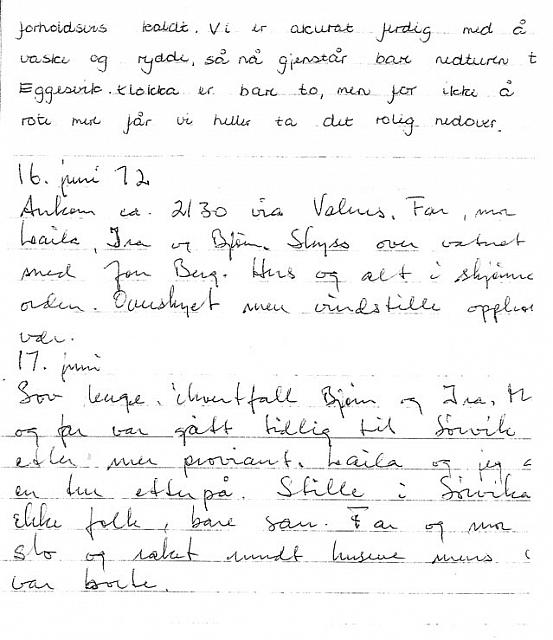 forholdsvis kaldt. Vi er akurat ferdig med å
vaske og rydde, så nå gjenstår bare nedturen t
Eggesvik. Klokka er bare to, men for ikke å
rote mer får vi heller ta det rolig nedover.
16. juni 72
Ankom ca. 2130 via Valnes. Far, mor
Laila, Ira og Bjørn. Skyss over vatnet
med Jon Berg. Hus og alt i skjønne
orden. Overskyet men vindstille opphol
vær.
17. juni
Sov lenge, ihvertfall Bjørn og Ira. M
og far var gått tidlig til Sørvik
etter mer proviant. Laila og jeg
en tur etterpå. Stille i Sørvika
ikke folk, bare sau. Far og mor
slo og raket rundt husene mens
var borte.